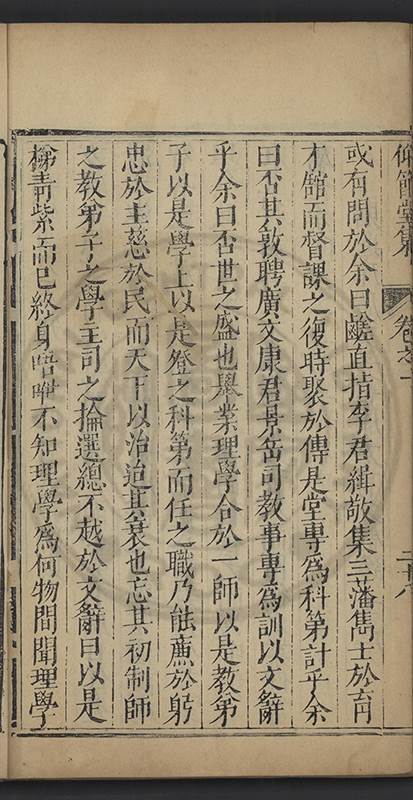 仰節堂集 卷之一 二十八
或有問於余曰鹺直指李君緝敬集三藩雋士於育
才舘而督課之復時聚於傳是堂專為科第計乎余
曰否其敦聘廣文康君景岳司教事專為訓以文辭
乎余曰否世之盛也舉業理學合於一師以是教弟
子以是學上以是登之科第而任之職乃能廉於躬
忠於主慈於民而天下以治迨其衰也忘其初制師
之教弟子之學主司之掄選總不越於文辭曰以是
梯青紫而已終身唔咿不知理學為何物間聞理學